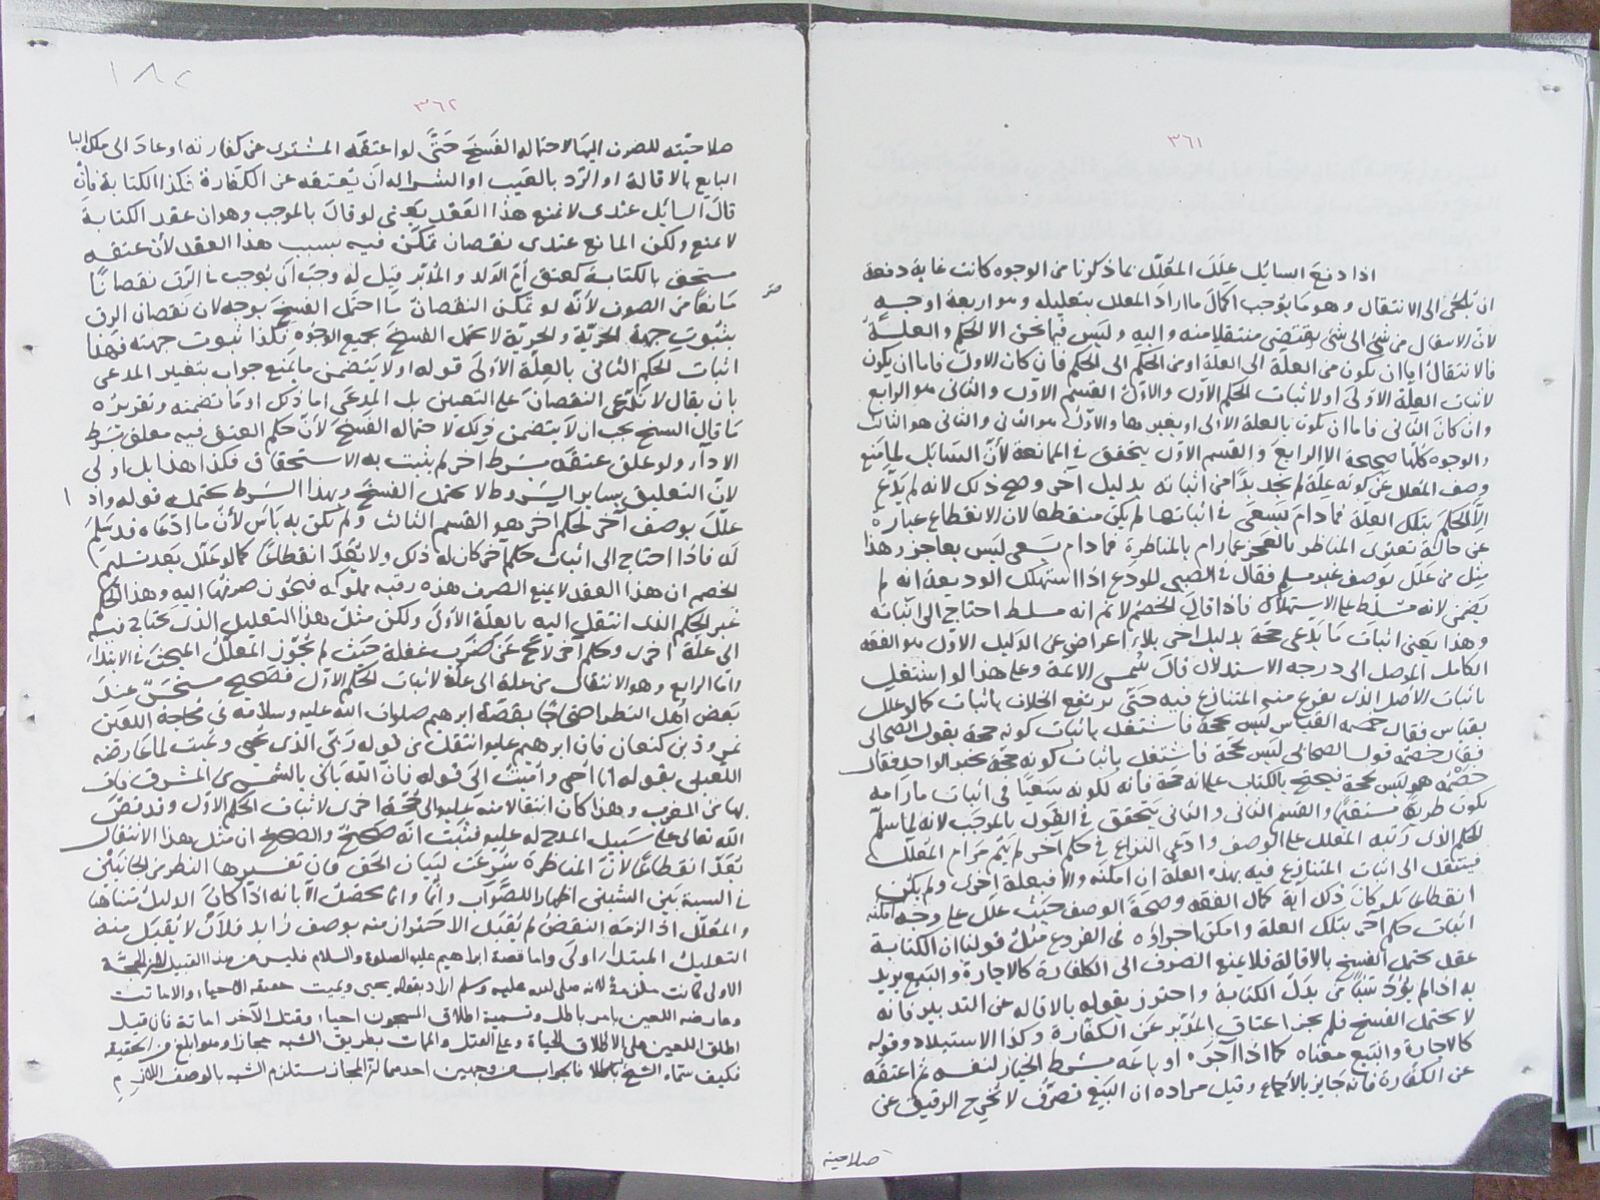 ٣٦١
اذا دفع السائل علل المعلل بما ذكرنا من الوجوه كانت غاية دفعه
ان يلجئ الى الانتقال وهو ما يوجب اكمال ما اراد المعلل بتعليله وهو اربعة اوجه
لان الانتقال من شئ الى شئ يقتضى منتقلا منه واليه وليس فيما نحن الا الحكم والعلة
فالانتقال اما ان يكون من العلة الى العلة او من الحكم الى الحكم فان كان الاول فاما ان يكون
لاثبات العلة الاولى او لاثبات الحكم الاول والاول القسم الاول والثانى هو الرابع
وان كان الثانى فاما ان يكون بالعلة الاولى او بغيرها والاول هو الثانى والثانى هو الثالث
والوجوه كلها صحيحة الا الرابع والقسم الاول يتحقق فى الممانعة لان السائل لما منع
وصف المعلل عن كونه علة لم يجد بدا من اثباته بدليل آخر وصح ذلك لانه لم يدع
الا الحكم بتلك العلة فما دام يسعى فى اثباتها لم يكن منقطعا لان الانقطاع عبارة
عن حالة تعترى المناظر بالعجز عما رام بالمناظرة فما دام يسعى ليس بعاجز وهذا
مثل من علل بوصف غير مسلم فقال فى الصبى المودع اذا استهلك الوديعة انه لم
يضمن لانه مسلط على الاستهلاك فاذا قال الخصم لا نم انه مسلط احتاج الى اثباته
وهذا يعنى اثبات ما يدعى حجة بدليل آخر بلا اعراض عن الدليل الاول هو الفقه
الكامل الموصل الى درجة الاستدلال قال شمس الائمة وعلى هذا لو اشتغل
باثبات الاصل الذى تفرع منه المتنازع فيه حتى يرتفع الخلاف باثبات كما لو علل
بقياس فقال خصمه القياس ليس بحجة فاشتغل باثبات كونه حجة بقول الصحابى
فقال خصمه قول الصحابى ليس بحجة فاشتغل باثبات كونه حجة بخبر الواحد فقال
خصمه هو ليس بحجة فيحتج بالكتاب على انه حجة فانه لكونه سعيا فى اثبات ما رامه
يكون طريقا مستقيما والقسم الثانى والثانى يتحقق فى القول بالموجب لانه لما سلم
الحكم الذى رتبه المعلل على الوصف وادعى النزاع فى حكم آخر لم يتم مرام المعلل
فينتقل الى اثبات المتنازع فيه بهذه العلة ان امكنه والا فبعلة اخرى ولم يكن
انقطاعا بل كان ذلك آية كمال الفقه وصحة الوصف حيث علل على وجه امكنه
اثبات حكم آخر بتلك العلة وامكن اجراؤه فى الفروع مثل قولنا ان الكتابة
عقد يحتمل الفسخ بالاقالة فلا يمنع الصرف الى الكفارة كالاجارة والبيع يريد
به اذا لم يؤد شيئا من بدل الكتابة واحترز بقوله بالاقالة عن التدبير فانه
لا يحتمل الفسخ فلم يجز اعتاق المدبر عن الكفارة وكذا الاستيلاد وقوله
كالاجارة والبيع معناه كما اذا آجره او باعه بشرط الخيار لنفسه ثم اعتقه
عن الكفارة فانه جايز بالاجماع وقيل مراده ان البيع تصرف لا يخرج الرقيق عن
صلاحيته
٣٦٢
صلاحيته للصرف اليها لاحتماله الفسخ حتى لو اعتقه المشترى عن كفارته او عاد الى ملك البا
البايع بالاقالة او الرد بالعيب او الشراء له ان يعتقه عن الكفارة فكذا الكتابة فان
قال السائل عندى لا يمنع هذا العقد يعنى لو قال بالموجب وهو ان عقد الكتابة
لا يمنع ولكن المانع عندى نقصان تمكن فيه بسبب هذا العقد لان عتقه
مستحق بالكتابة كعتق ام الولد والمدبر قيل له وجب ان يوجب فى الرق نقصانا
مانعا من الصرف لانه لو تمكن النقصان لما احتمل الفسخ بوجه لان نقصان الرق
بثبوت جهة الحرية والحرية لا تحتمل الفسخ بجميع الوجوه فكذا ثبوت جهته فهذا
اثبات الحكم الثانى بالعلة الاولى قوله او لا يتضمن ما يمنع جواب بتغيير المدعى
بان يقال لا ندعى النقصان على التعيين بل المدعى اما ذلك او ما تضمنه وتقريره
ما قال الشيخ يجب ان لا يتضمن ذلك لاحتماله الفسخ لان حكم العتق فيه معلق بشرط
الاداء ولو علق عتقه بشرط اخر لم يثبت به الاستحقاق فكذا هذا بل اولى
لان التعليق بساير الشروط لا يحتمل الفسخ وبهذا الشرط يحتمله قوله واذ ا
علل بوصف آخر لحكم آخر هو القسم الثالث ولم يكن به بأس لان ما ادعاه قد سلم
له فاذا احتاج الى اثبات حكم آخر كان له ذلك ولا يعد انقطاعا كما لو علل بعد تسليم
الخصم ان هذا العقد لا يمنع الصرف هذه رقبة مملوكة فيجوز صرفها اليه وهذا الحكم
غير الحكم الذى انتقل اليه بالعلة الاولى ولكن مثل هذا التعليل الذى يحتاج فيه
الى علة اخرى وحكم آخر لا يخ عن ضرب غفلة حيث لم يجوز المعلل المبحث فى الابتداء
واما الرابع وهو الانتقال من علة الى علة لاثبات الحكم الاول فصحيح مستحسن عند
بعض اهل النظر احتجاجا بقصة ابرهيم صلوات الله عليه وسلامه فى محاجة اللعين
نمروذ بن كنعان فان ابرهيم عليه انتقل من قوله ربى الذى يحيى ويميت لما عارضه
اللعين بقوله انا احيى واميت الى قوله فان الله يأتى بالشمس من المشرق فات
بها من المغرب وهذا كان انتقالا منه عليه الى حجة اخرى لاثبات الحكم الاول وقد قص
الله تعالى على سبيل المدح له عليه فثبت انه صحيح والصحيح ان مثل هذا الانتقال
يعد انقطاعا لان المناظرة شرعت لبيان الحق فان تفسيرها النظر من الجانبين
فى النسبة بين الشيئين اظهارا للصواب وانما يحصل الابانة اذا كان الدليل متناهيا
والمعلل اذا لزمه النقض لم يقبل الاحتراز منه بوصف زايد فلان لا يقبل منه
التعليل المبتدا اولى واما قصة ابراهيم عليه الصلوة والسلام فليس من هذا القبيل لان الحجة
الاولى كانت ملزمة لانه صلى الله عليه وسلم اراد بقوله يحيى ويميت حقيقة الاحياء والاماتت
وعارضه اللعين بامر باطل وتسمية اطلاق المسجون احياء وقتل الآخر اماتة فان قيل
اطلق اللعين على الاطلاق الحياة وعلى القتل والممات بطريق الشبه مجازا وهو ابلغ من الحقيقة
فكيف سماه الشيخ باطلا فالجواب من وجهين احدهما ان المجاز يستلزم الشبه بالوصف اللازم